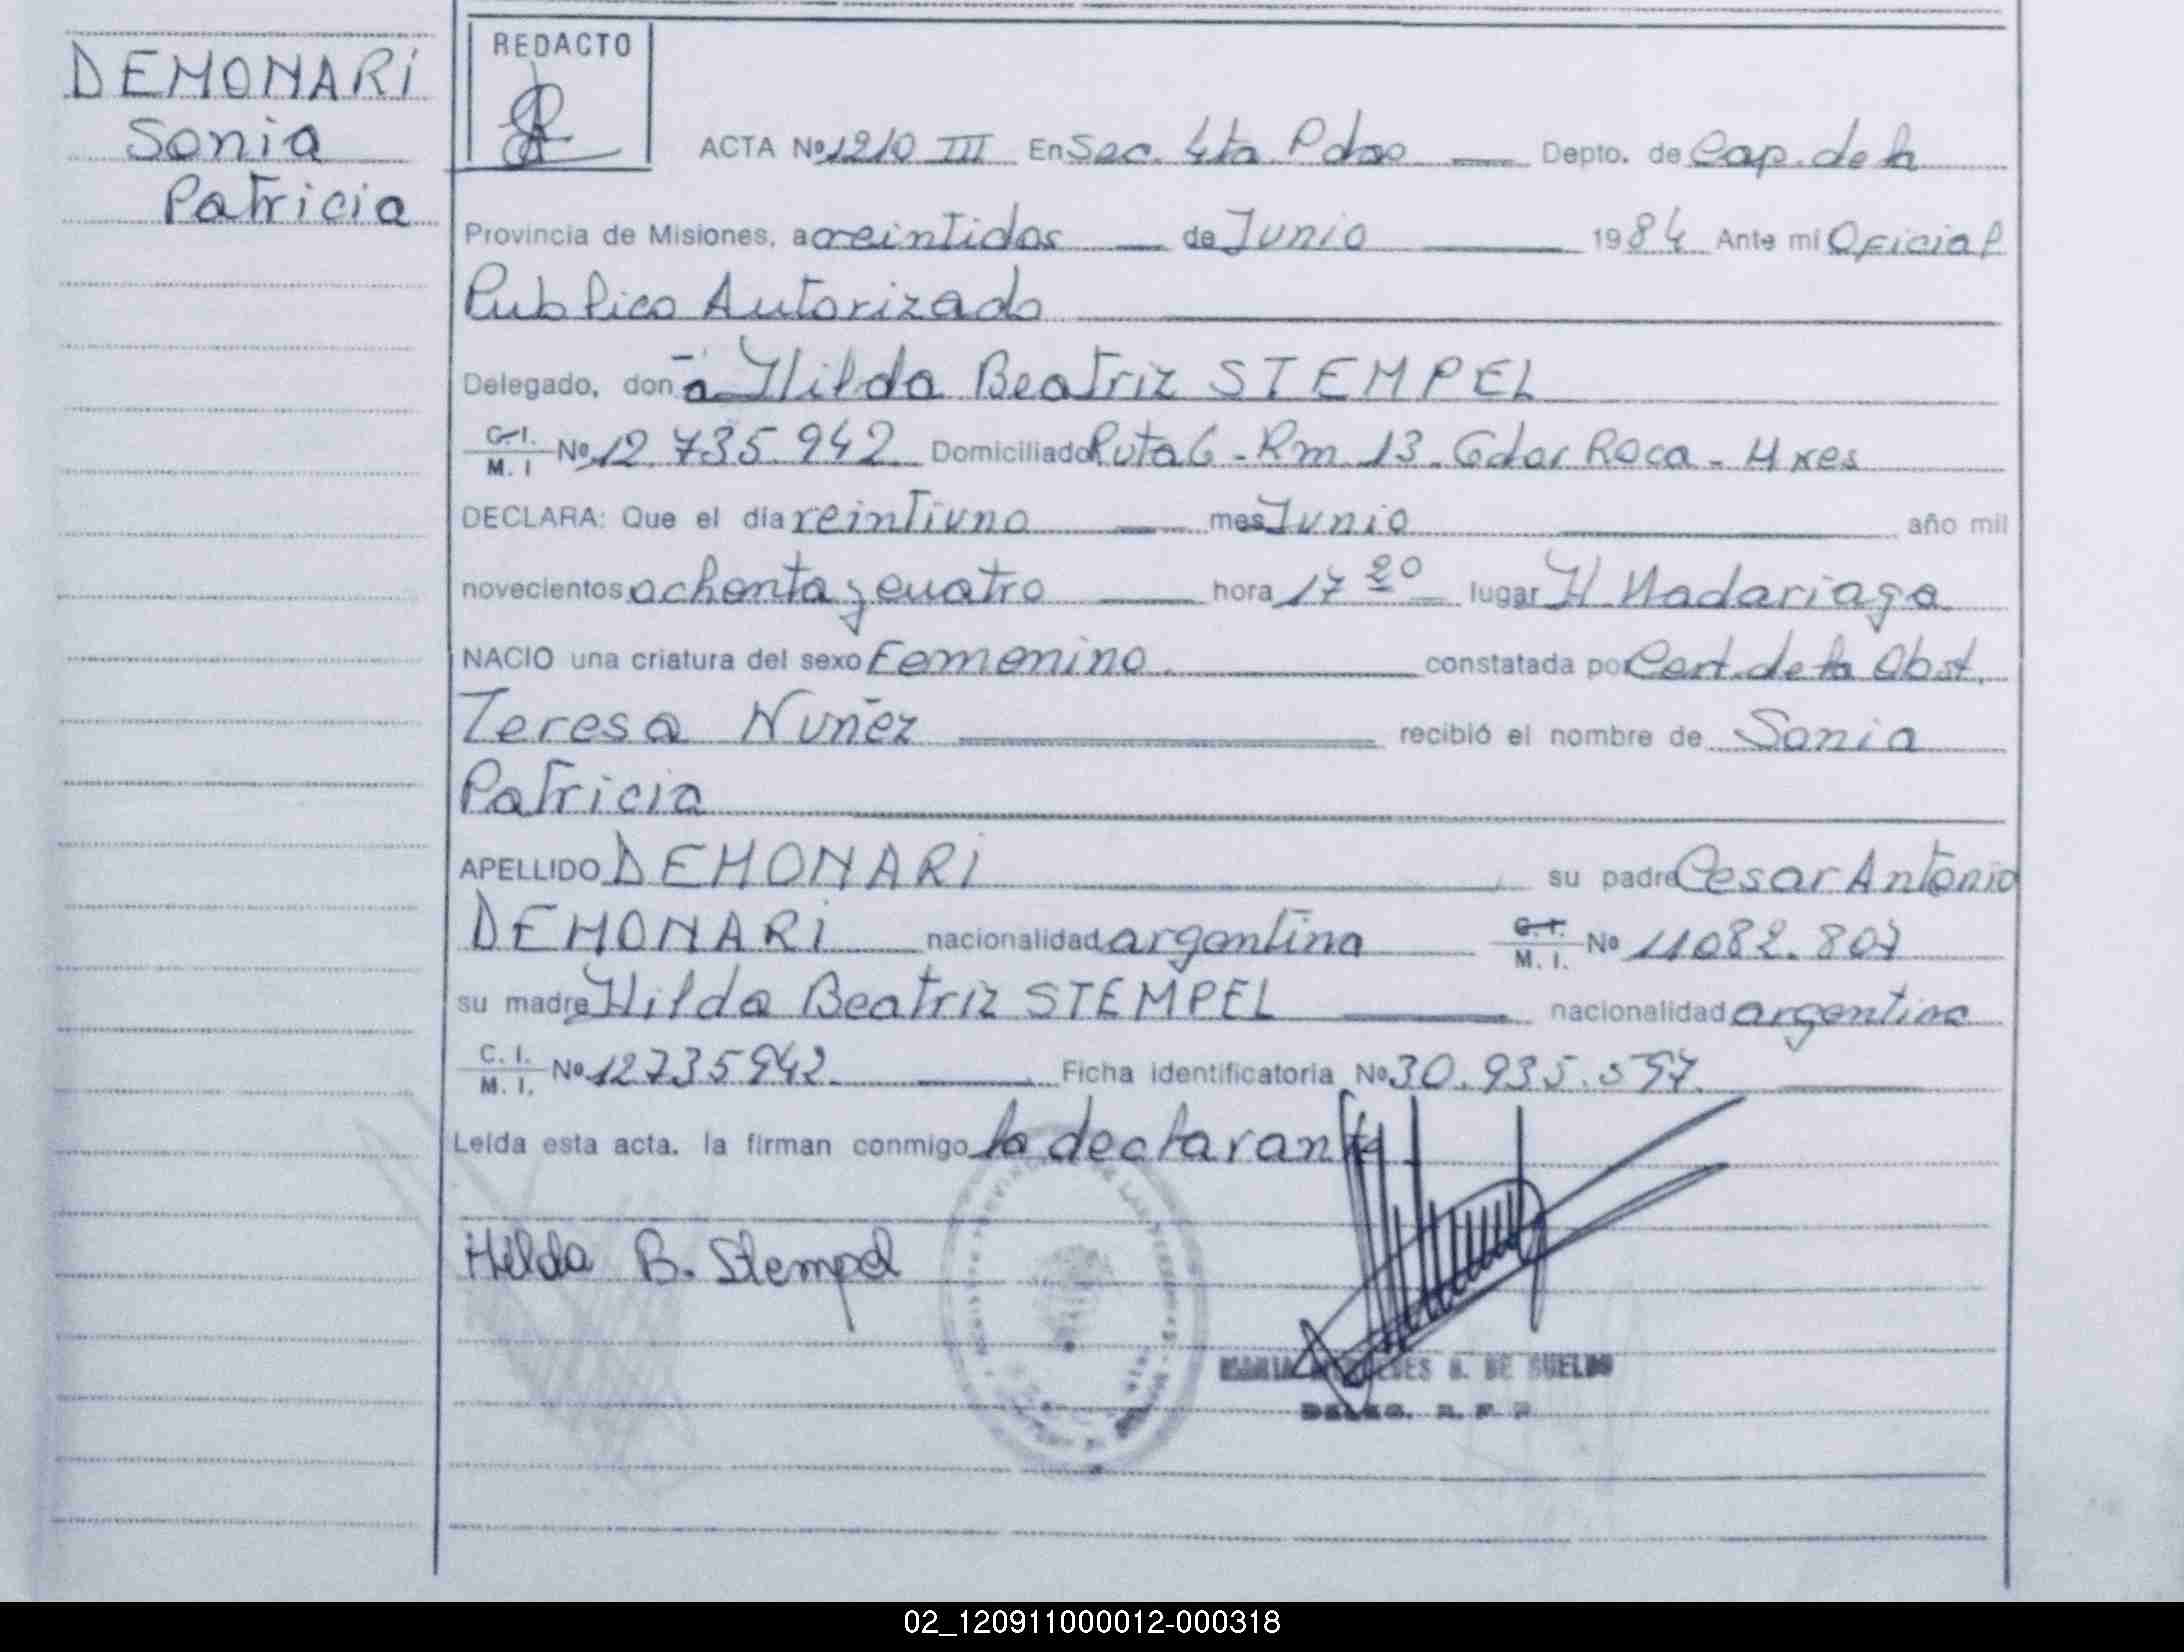 DEMONARI
Sonia
Patricia
REDACTO
ACTA Nº 1210 III En Sec. 4ta Pdas Depto. de Cap. de la
Provincia de Misiones, a veintidos de Junio 1984 Ante mi Oficial
Publico Autorizado
Delegado, don ña Hilda Beatriz STEMPEL
C.I. M. I Nº 12.735.942 Domiciliado Ruta 6 - Km 13. Gdor Roca - Mnes
DECLARA: Que el día veintiuno mes Junio año mil
novecientos ochenta y cuatro hora 17 20 lugar H. Madariaga
NACIO una criatura del sexo Femenino constatada por Cert. de la Obst.
Teresa Nuñez recibió el nombre de Sonia
Patricia
APELLIDO DEMONARI su padre Cesar Antonio
DEMONARI nacionalidad argentina C.I. M. I. Nº 11082.807
su madre Hilda Beatriz STEMPEL nacionalidad argentina
C. I. M. I. Nº 12735942 Ficha identificatoria Nº 30.935.597
Leida esta acta. la firman conmigo la declarante
Hilda B. Stempel
MARIA A. DE SUELDO
02_120911000012-000318